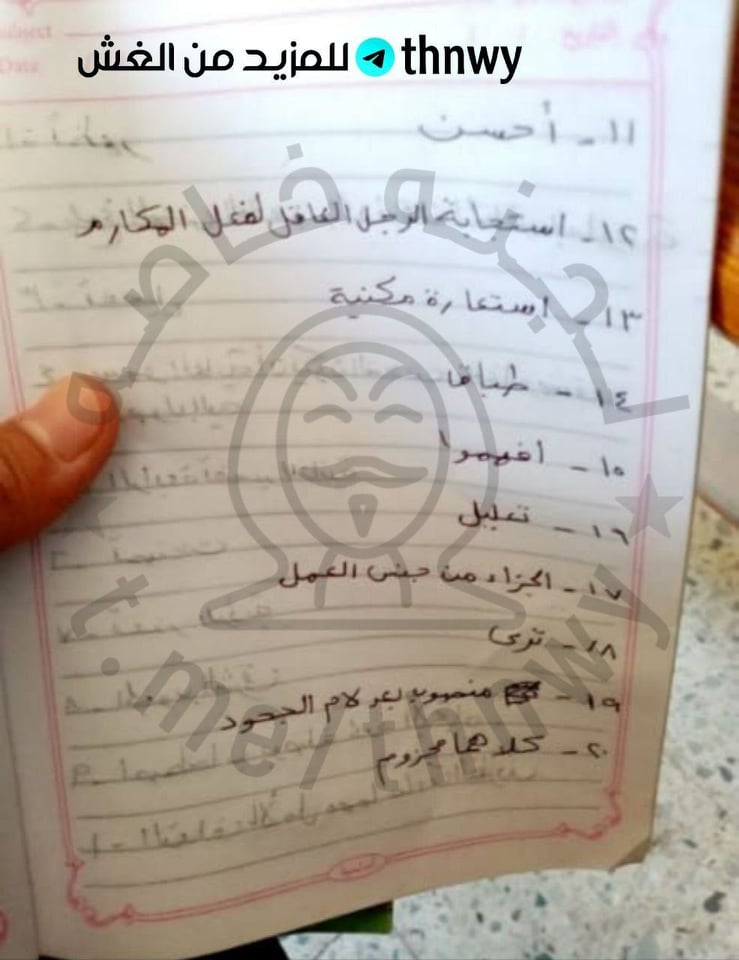 thnwy للمزيد من الغش
لجنه خاصه
t.me/thnwy
١١ - أحسن
١٢ - استجابة الرجل العاقل لفعل المكارم
١٣ - استعارة مكنية
١٤ - طباقا
١٥ - افهموا
١٦ - تعليل
١٧ - الجزاء من جنس العمل
١٨ - ترى
١٩ - منصوب بعد لام الجحود
٢٠ - كلاهما مجزوم